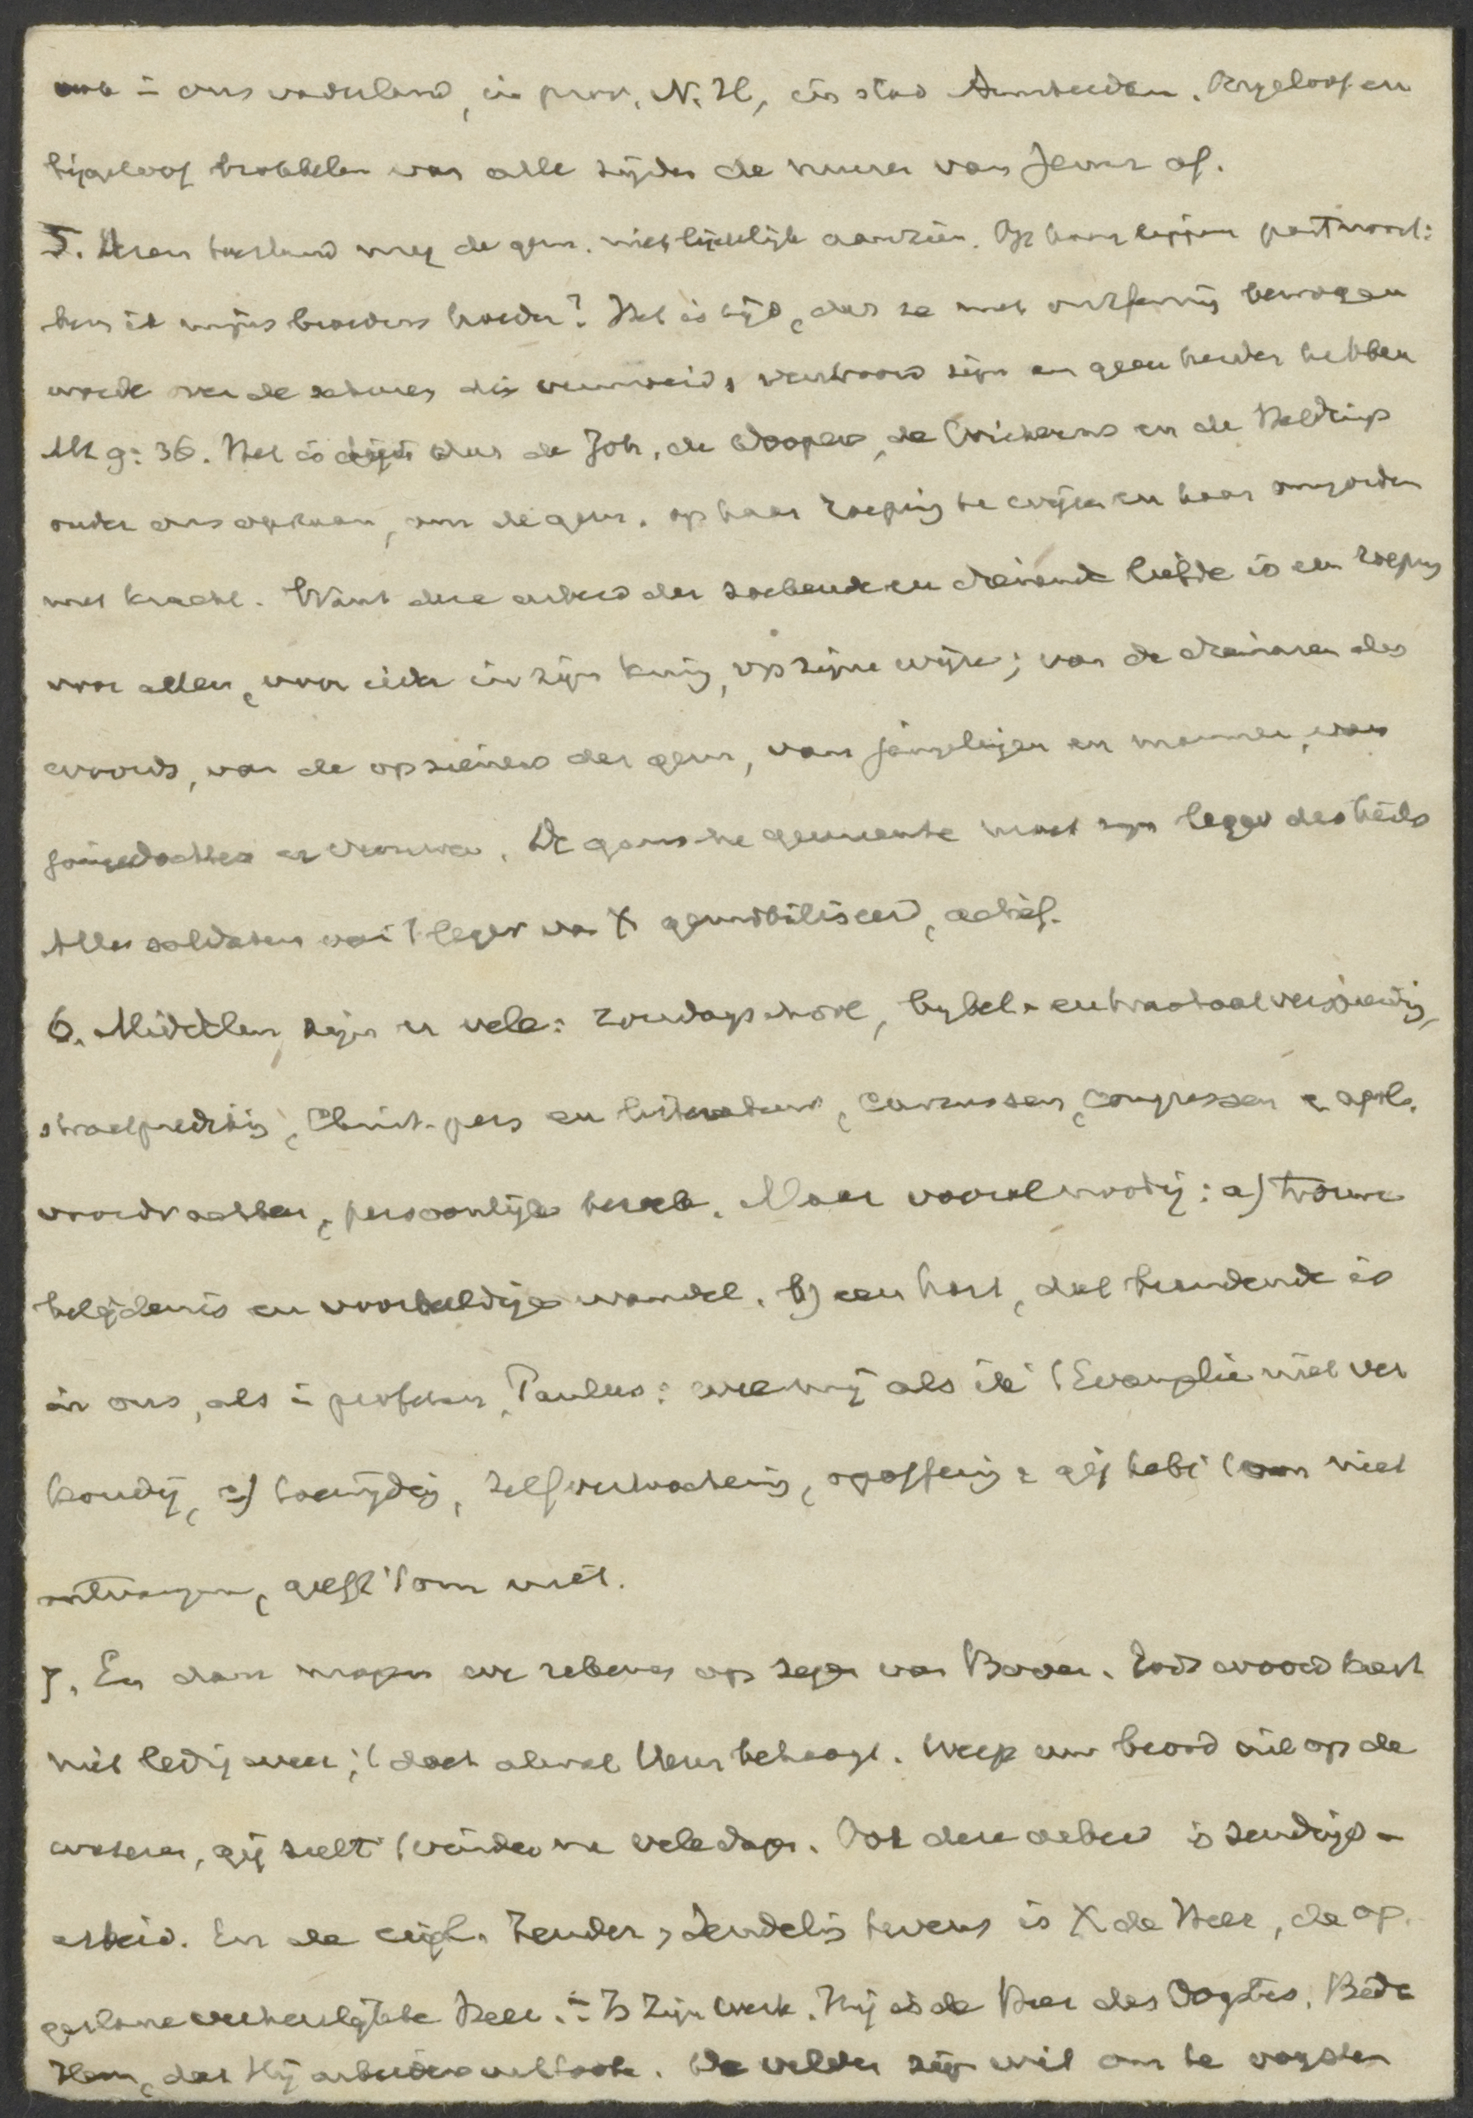 ook in ons vaderland, in prov. N.H., in stad Amsterdam. Ongeloof en
bijgeloof brokkelen van alle zijden de muren van Jeruz. af.
5. Dezen toestand mag de gem. niet lijdelijk aanzien. Op haar lippen past nooit:
ben ik mijns broeders hoeder? Het is tijd, dat ze met ontferming bewogen
worde over de scharen die vermoeid, verstrooid zijn en geen herder hebben
Mt 9:36. Het is dus de Joh. de Dooper, de Wicherns en de Heldrings
onder ons opstaan, om de gem. op haar roeping te wijzen en haar omgorden
met kracht. Want deze arbeid der zoekende en dienende liefde is een roeping
voor allen, voor ieder in zijn kring, op zijne wijze; van de dienaren des
woords, van de opzieners der gem, van jongelingen en mannen, van
jongedochters en vrouwen. De gansche gemeente moet zijn leger des heils
Alle soldaten van 't leger van X gemobiliseerd, actief.
6. Middelen zijn er vele: zondagschool, bijbel- en tractaatverspreiding,
straatprediking, Christ. pers en literatuur, cursussen, congressen en apol.
voordrachten, persoonlijk bezoek. Maar vooral noodig: a) trouwe
belijdenis en voorbeeldige wandel. b) een hart, dat brandende is
in ons, als in profeten, Paulus: wee mij als ik 't Evangelie niet ver
kondig, c) toewijding, zelfverloochening, opoffering: gij hebt 't om niet
ontvangen, geeft 't om niet.
7. En dan mogen we rekenen op zegen van Boven. Gods woord keert
niet ledig weer; 't doet alwat Hem behaagt. Werp uw brood uit op de
wateren, gij zult 't vinden na vele dagen. Ook deze arbeid is zendings-
arbeid. En de eigl. Zender, Zendeling tevens is X de Heer, de op
gestane verheerlijkte Heer. 't Is Zijn werk. Hij is de Heer des Oogstes. Bidt
Hem, dat Hij arbeiders uitstoote. De velden zijn wit om te oogsten